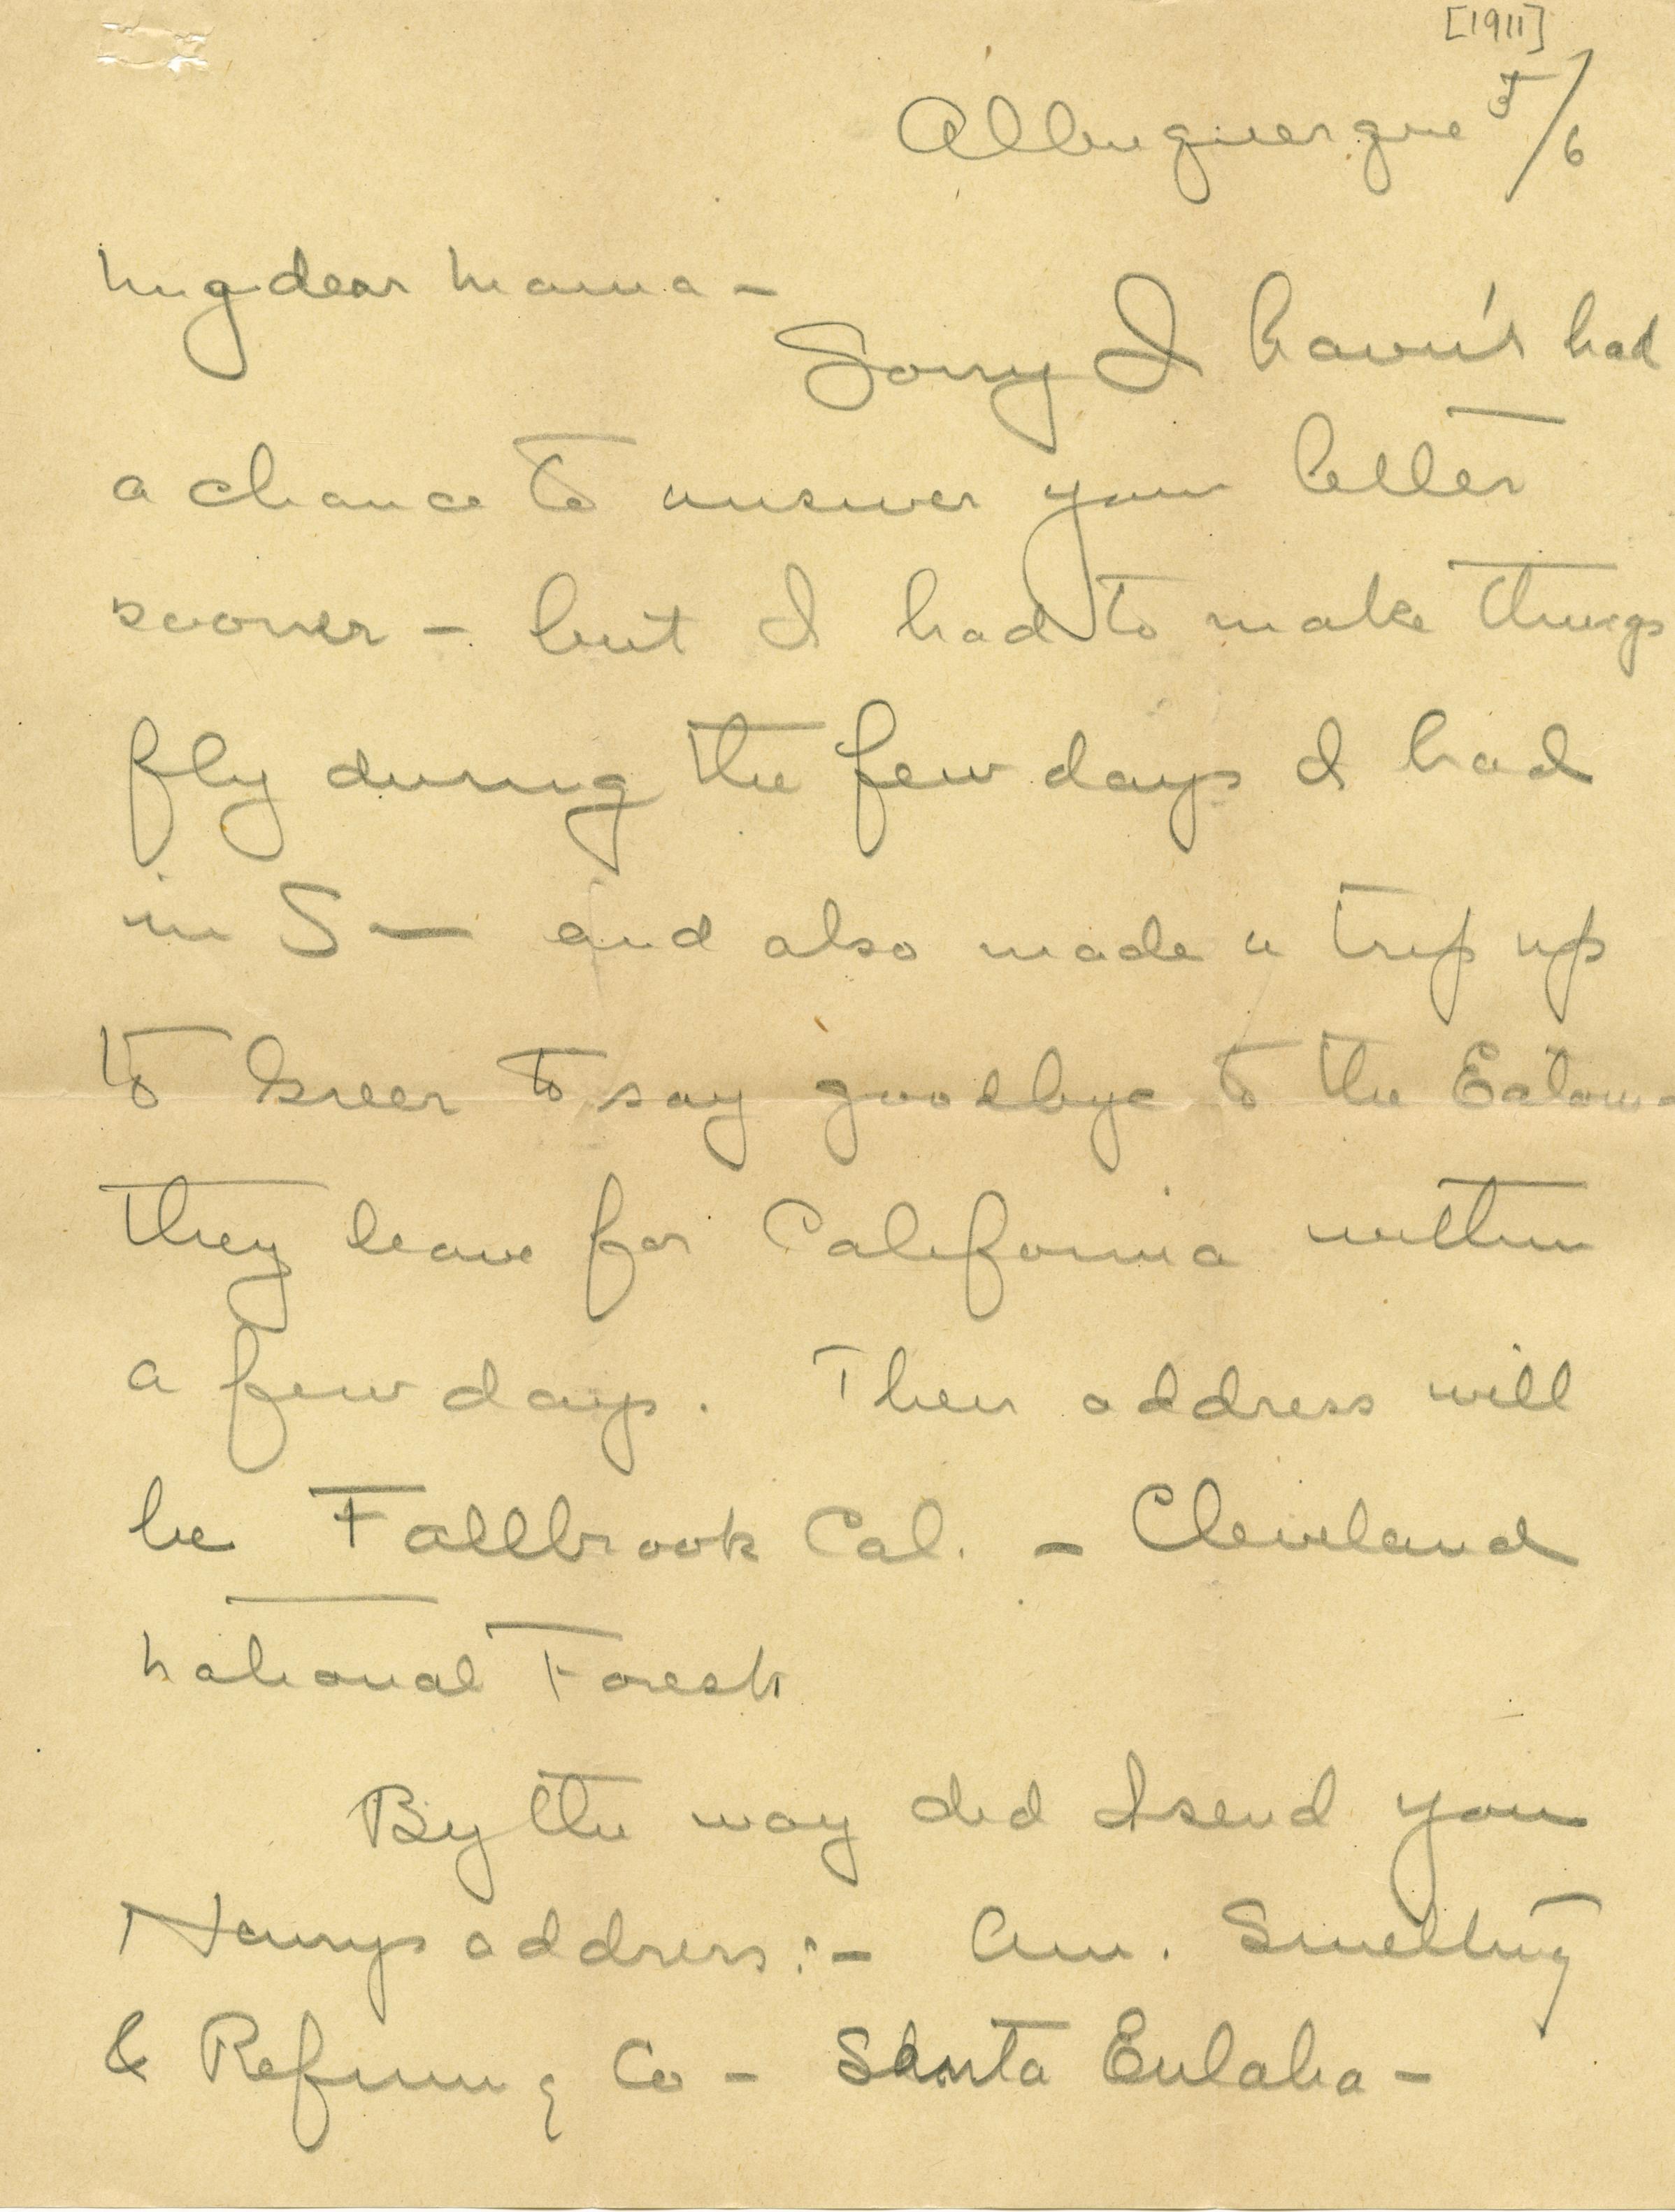 [1911]
Albuquerque 5/6
My dear Mama -
Sorry I haven't had
a chance to answer your letter
sooner - but I had to make things
fly during the few days I had
in S— and also made a trip up
to Greer to say goodbye to the Eatons -
They leave for California within
a few days. Their address will
be Fallbrook Cal. - Cleveland
National Forest
By the way did I send you
Henrys address:- Am. Smelting
& Refining Co - Santa Eulalia -